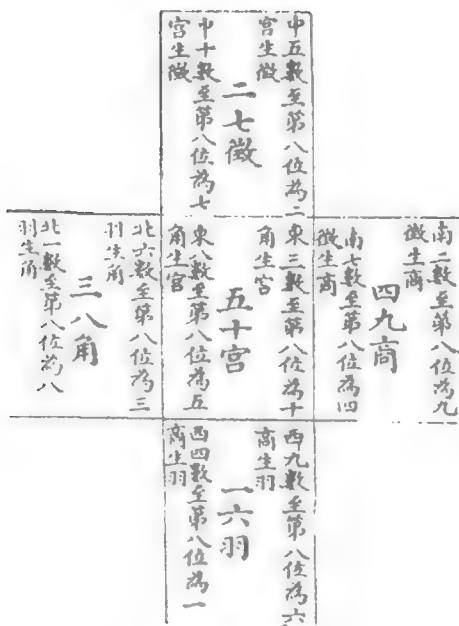 中五數至第八位為二
宮生徵
二七徵
中十數至第八位為七
宮生徵
南二數至第八位為九
徵生商
四九商
南七數至第八位為四
徵生商
東三數至第八位為十
角生宮
五十宮
東八數至第八位為五
角生宮
北六數至第八位為三
羽生角
三八角
北一數至第八位為八
羽生角
西九數至第八位為六
商生羽
一六羽
西四數至第八位為一
商生羽